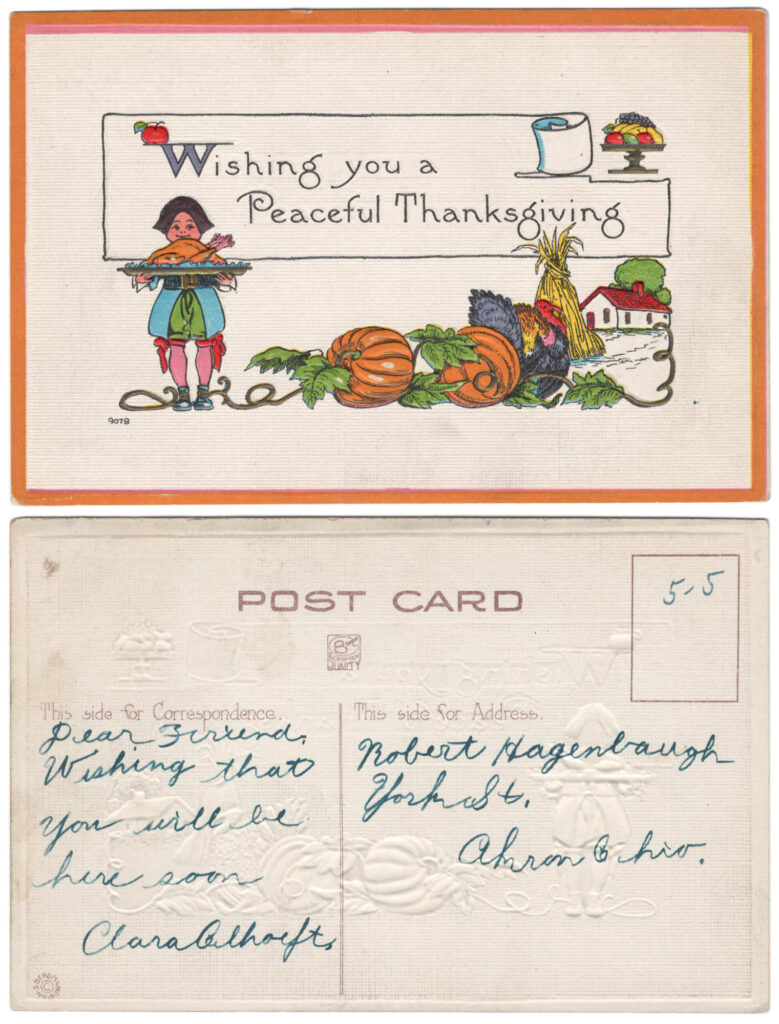 Wishing you a
Peaceful Thanksgiving
9078
POST CARD
5-5
BERGMAN
QUALITY
This side for Correspondence.
This side for Address.
Dear Friend,
Wishing that
you will be
here soon
Clara
Robert Hagenbaugh
York St.
Akron Ohio.